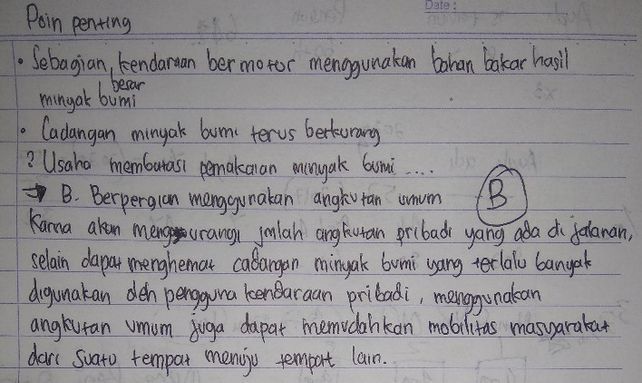 Date :
Poin penting
• Sebagian besar kendaraan bermotor menggunakan bahan bakar hasil
minyak bumi
• Cadangan minyak bumi terus berkurang
? Usaha membatasi pemakaian minyak bumi ....
→ B. Berpergian menggunakan angkutan umum
B
Karna akan mengurangi jmlah angkutan pribadi yang ada di jalanan,
selain dapat menghemat cadangan minyak bumi yang terlalu banyak
digunakan oleh pengguna kendaraan pribadi, menggunakan
angkutan umum juga dapat memudahkan mobilitas masyarakat
dari suatu tempat menuju tempat lain.